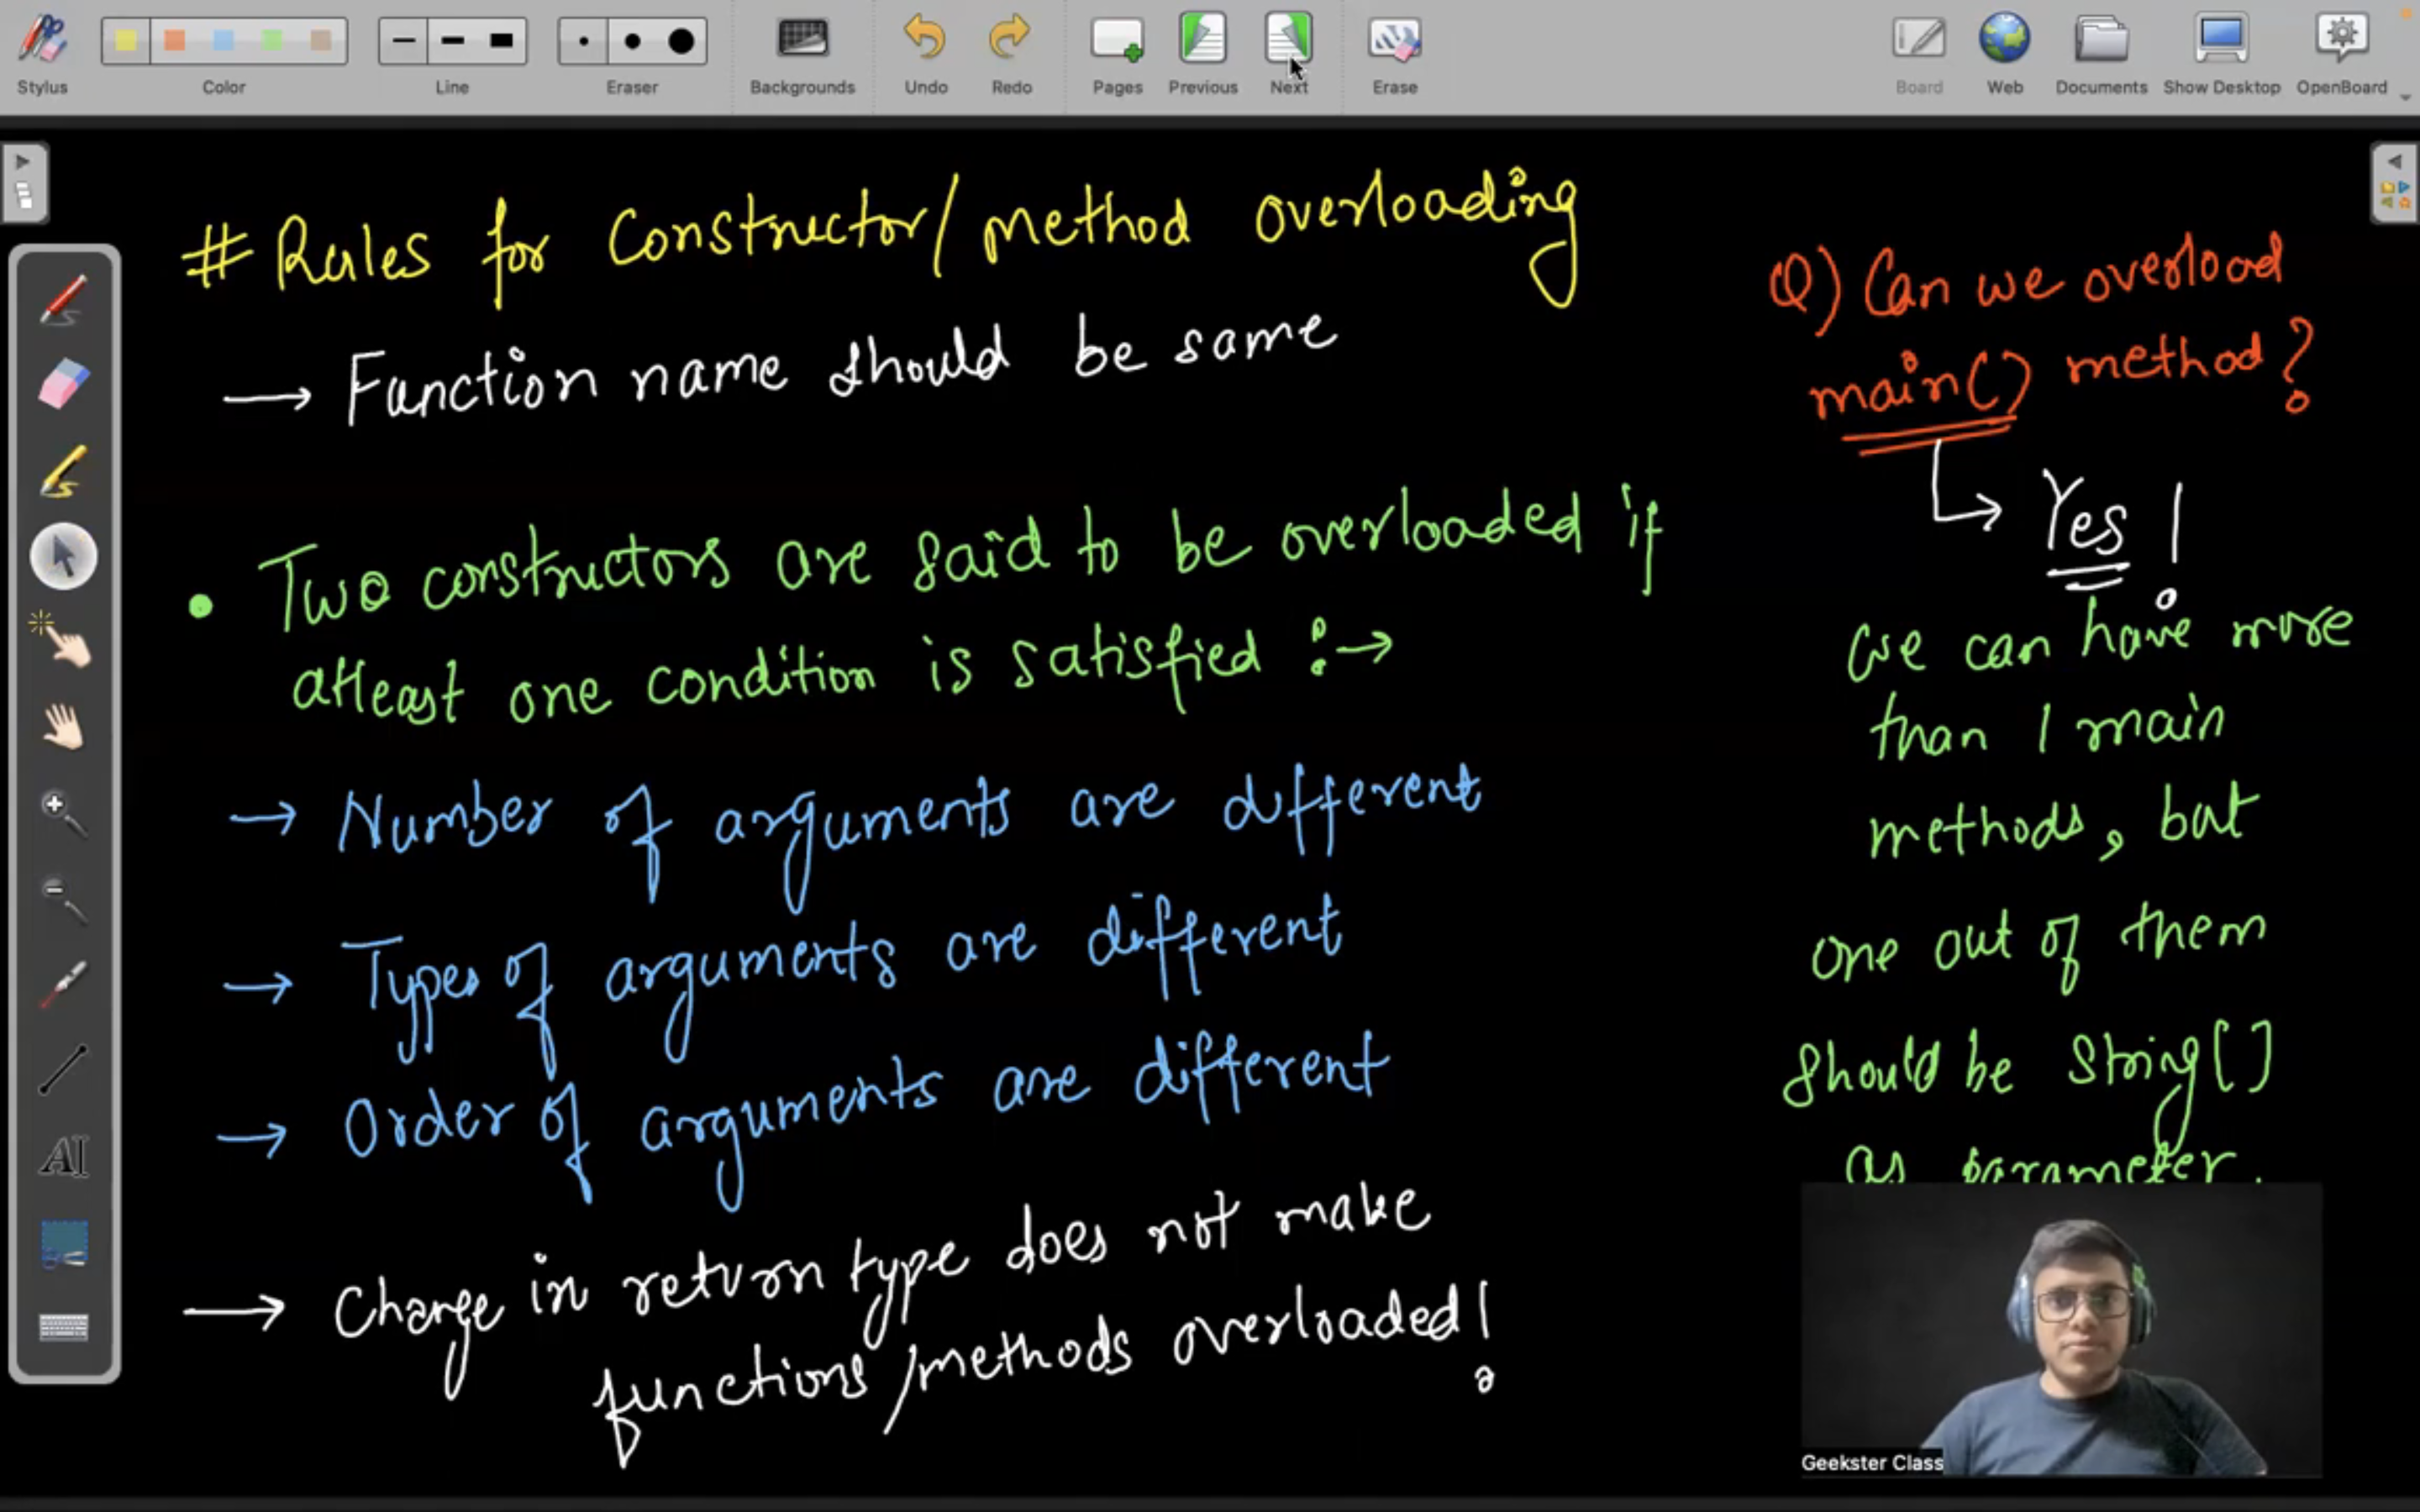 Stylus
Color
Line
Eraser
Backgrounds
Undo
Redo
Pages
Previous
Next
Erase
Board
Web
Documents
Show Desktop
OpenBoard
# Rules for Constructor/method overloading
→ Function name should be same
• Two constructors are said to be overloaded if
atleast one condition is satisfied :→
→ Number of arguments are different
→ Types of arguments are different
→ Order of arguments are different
→ Change in return type does not make
functions/methods overloaded!
Q) Can we overload
main() method?
↳ Yes!
we can have more
than 1 main
methods, but
one out of them
should be String[]
as parameter.
AI
Geekster Class